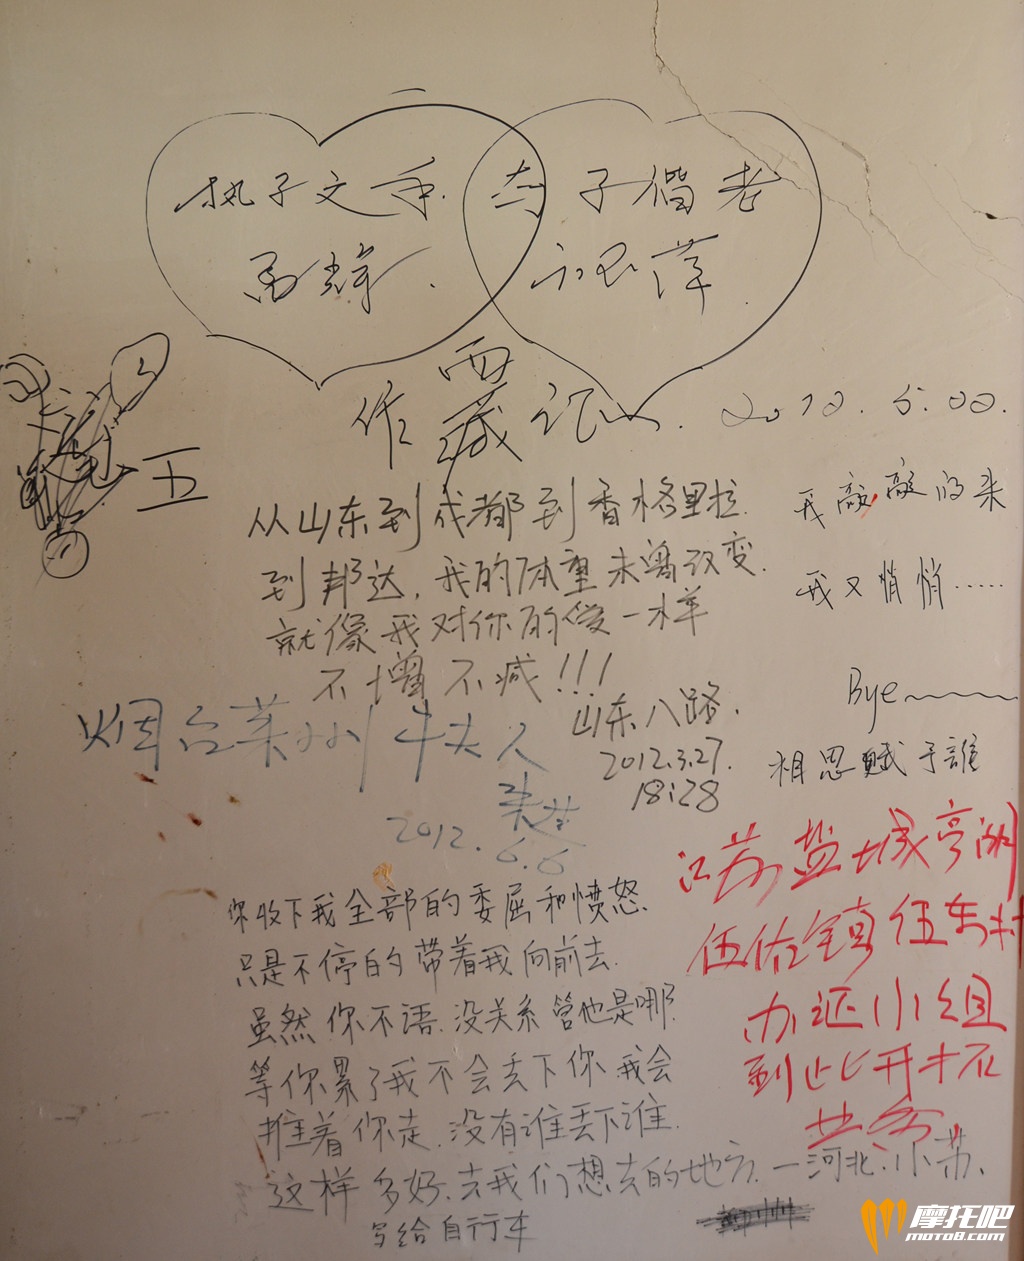 执子之手 与子偕老
西藏
作 证
2012.6.
五
从山东到成都到香格里拉
到邦达,我的体重未曾改变.
就像我对你的爱一样
不增不减!!!
山东八路.
2012.3.27.
18:28
我敲敲的来
我又悄悄……
Bye
相思赋予谁
烟台莱州 牛夫人
2012.6.6
你收下我全部的委屈和愤怒
只是不停的带着我向前去.
虽然你不语.没关系管他是哪
等你累了我不会丢下你我会
推着你走.没有谁丢下谁.
这样多好.去我们想去的地方.一河北.小苏.
写给自行车
江苏盐城亭湖
伍佑镇伍东村
办证小组
到此开拓
业务
摩托吧
MOTO8.COM